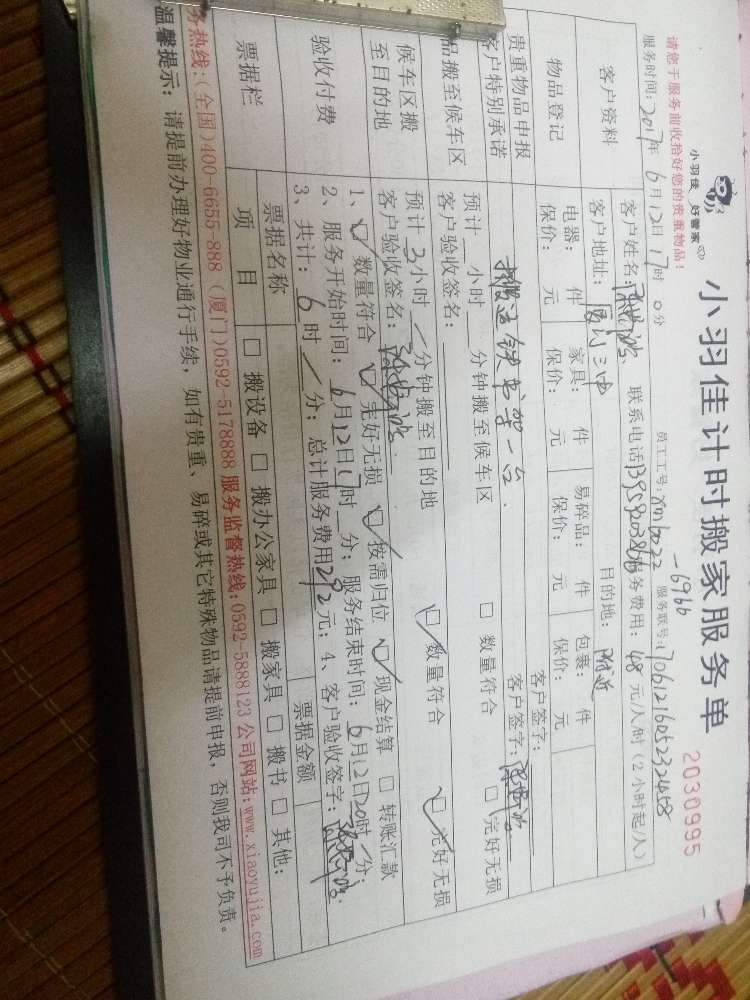 小羽佳计时搬家服务单
2030995
小羽佳 好管家
请您于服务前收拾好您的贵重物品！
员工工号: xmbo22 -6966 服务联号: 1706121605232458
服务时间: 2017年6月12日17时0分
客户资料
客户姓名: 联系电话 服务费用: 48 元/人/时(2小时起/人)
客户地址: 厦门三中 目的地: 附近
物品登记
电器: 件 家具: 件 易碎品: 件 包裹: 件
保价: 元 保价: 元 保价: 元 保价: 元
客户签字:
贵重物品申报
客户特别承诺
搬运铁书架一台. 客户签字:
品搬至候车区
预计 小时 分钟搬至候车区 □ 数量符合 □ 完好无损
客户验收签名:
候车区搬
至目的地
预计 3 小时 / 分钟搬至目的地 ☑ 数量符合 ☑ 完好无损
客户验收签名:
验收付费
1、☑ 数量符合 ☑ 完好无损 ☑ 按需归位 ☑ 现金结算 □ 转账汇款
2、服务开始时间: 6月12日17时 分; 服务结束时间: 6月12日20时/分;
3、共计: 6 时 / 分; 总计服务费用292元; 4、客户验收签字:
票据栏
票据名称 票据金额
项 目 □ 搬设备 □ 搬办公家具 □ 搬家具 □ 搬书 □ 其他:
务热线:(全国)400-6655-888 (厦门)0592-5178888 服务监督热线:0592-5888123 公司网站:www.xiaoyujia.com
温馨提示: 请提前办理好物业通行手续, 如有贵重、易碎或其它特殊物品请提前申报, 否则我司不予负责。